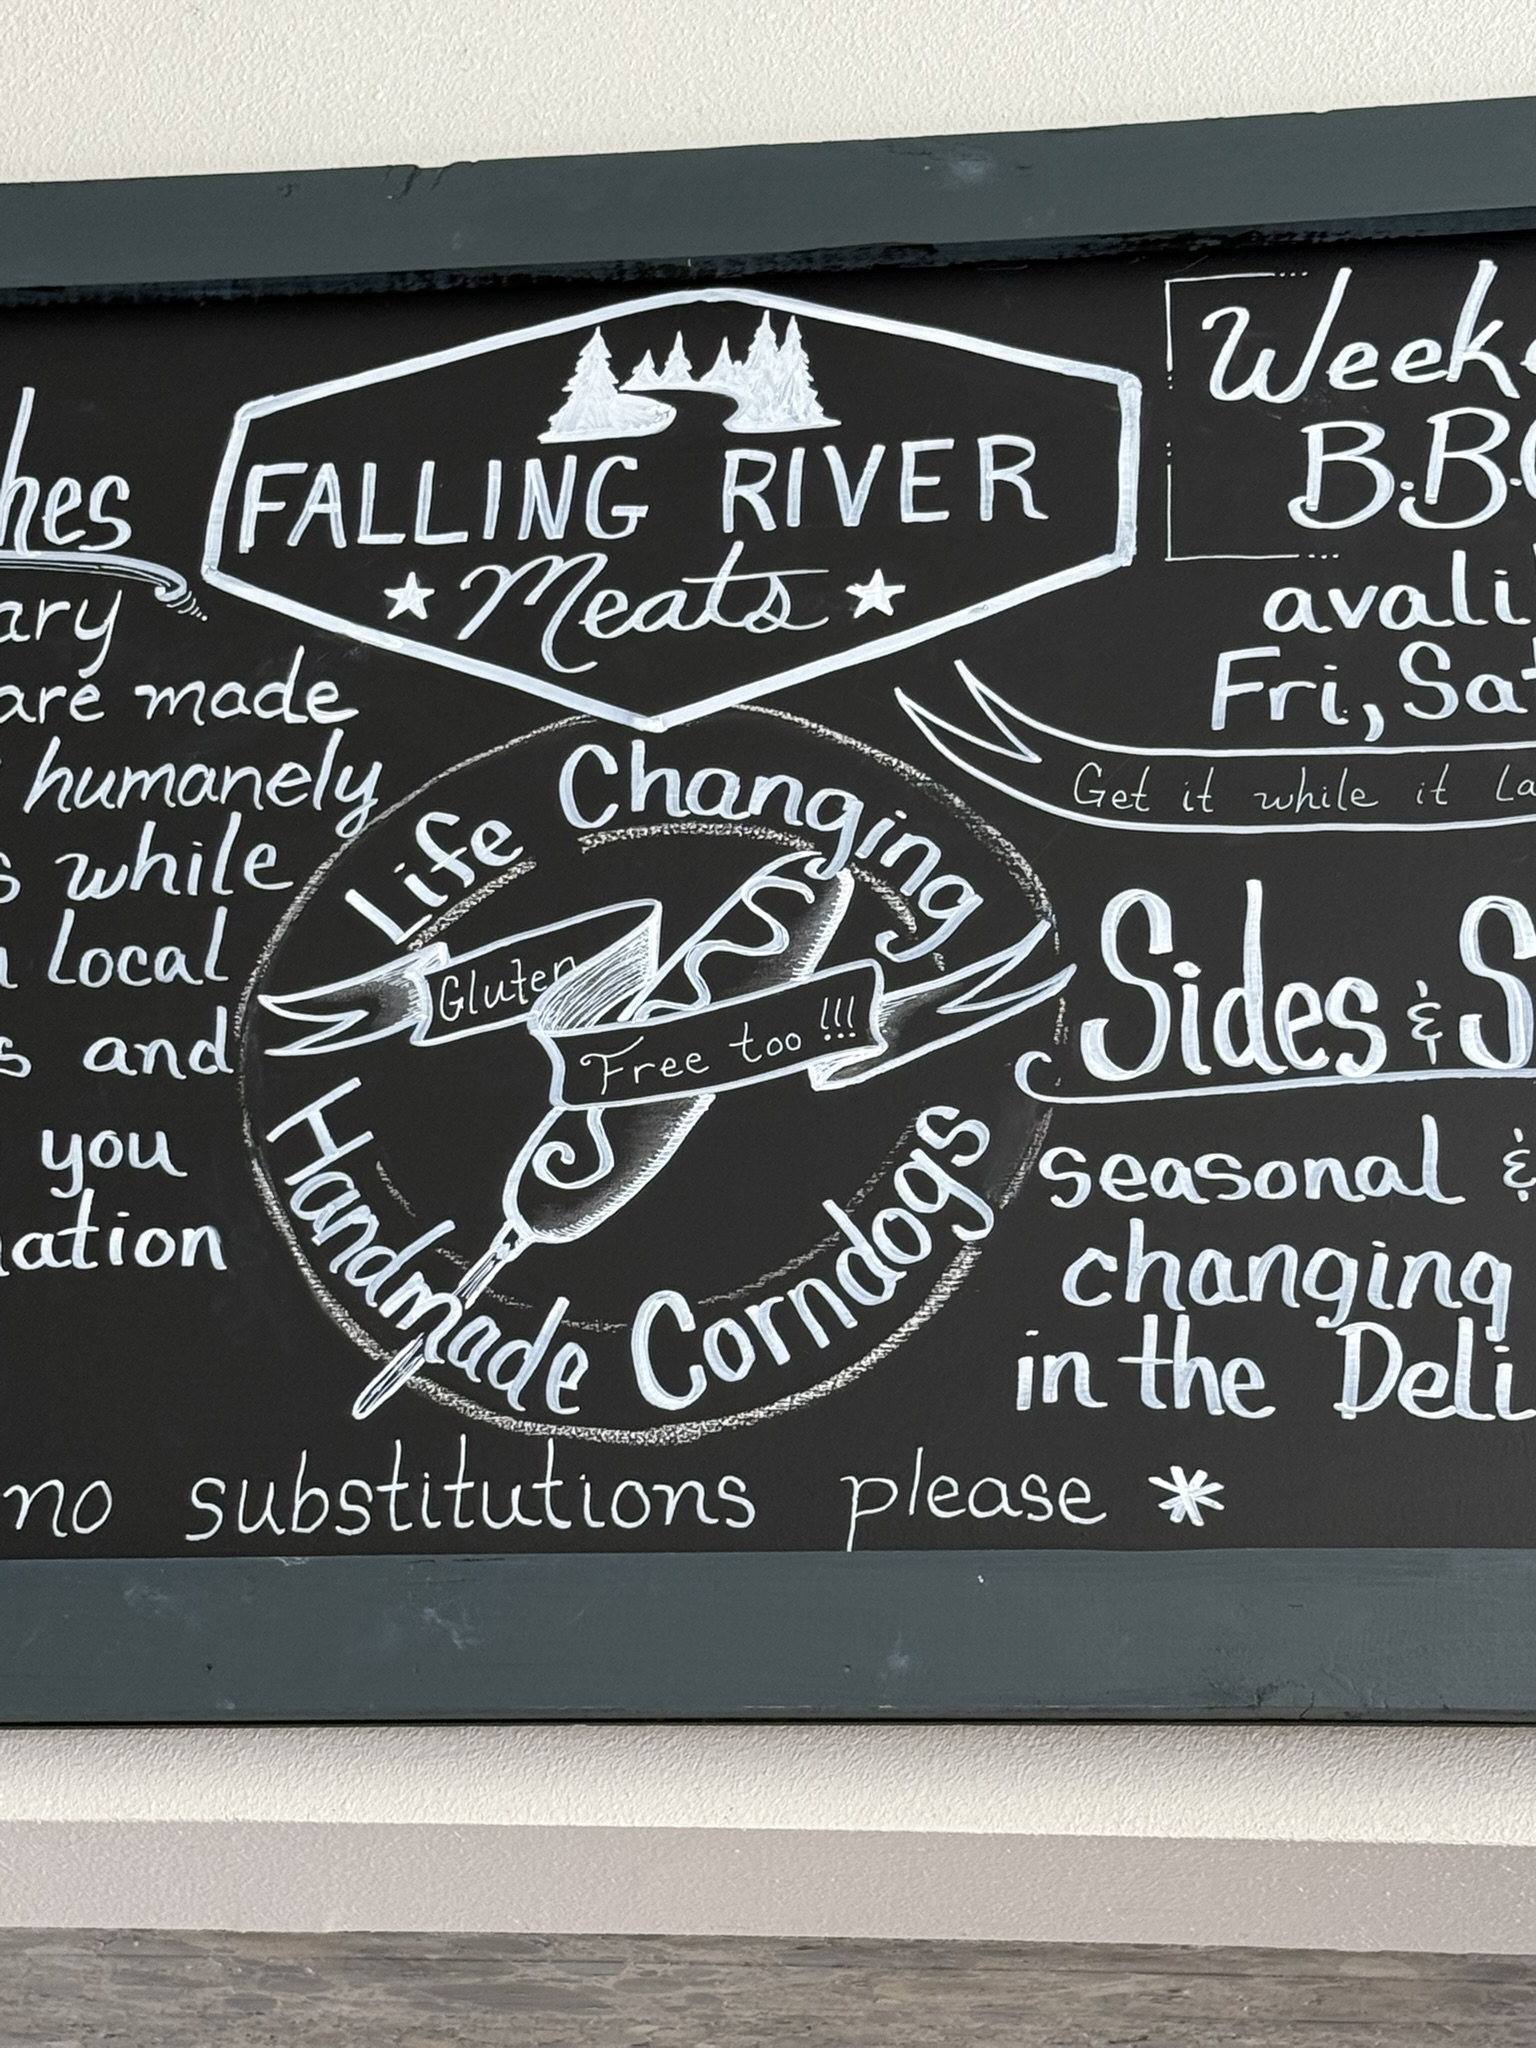 hes
ary
are made
humanely
s while
local
s and
you
ation
FALLING RIVER
★ Meats ★
Life Changing
Gluten
Free too !!!
Handmade Corndogs
Week
B.B.
avali
Fri, Sat
Get it while it La
Sides & S
seasonal &
changing
in the Deli
no substitutions please *